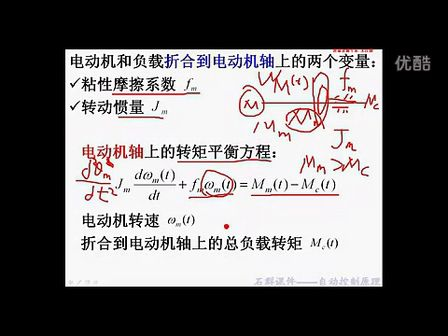 优酷
电动机和负载折合到电动机轴上的两个变量：
✓粘性摩擦系数 f_m
✓转动惯量 J_m
M M_m f_m M_c
J_m
M_m > M_c
电动机轴上的转矩平衡方程：
J_m dω_m(t)/dt + f_m ω_m(t) = M_m(t) − M_c(t)
电动机转速 ω_m(t)
折合到电动机轴上的总负载转矩 M_c(t)
石群课件——自动控制原理